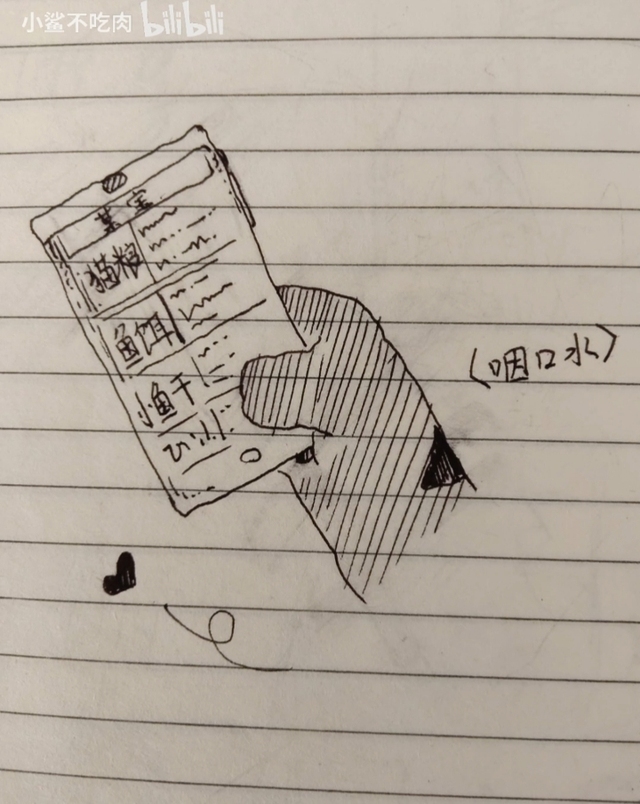 小鲨不吃肉 bilibili
某宝
猫粮
鱼饵
小鱼干
(咽口水)